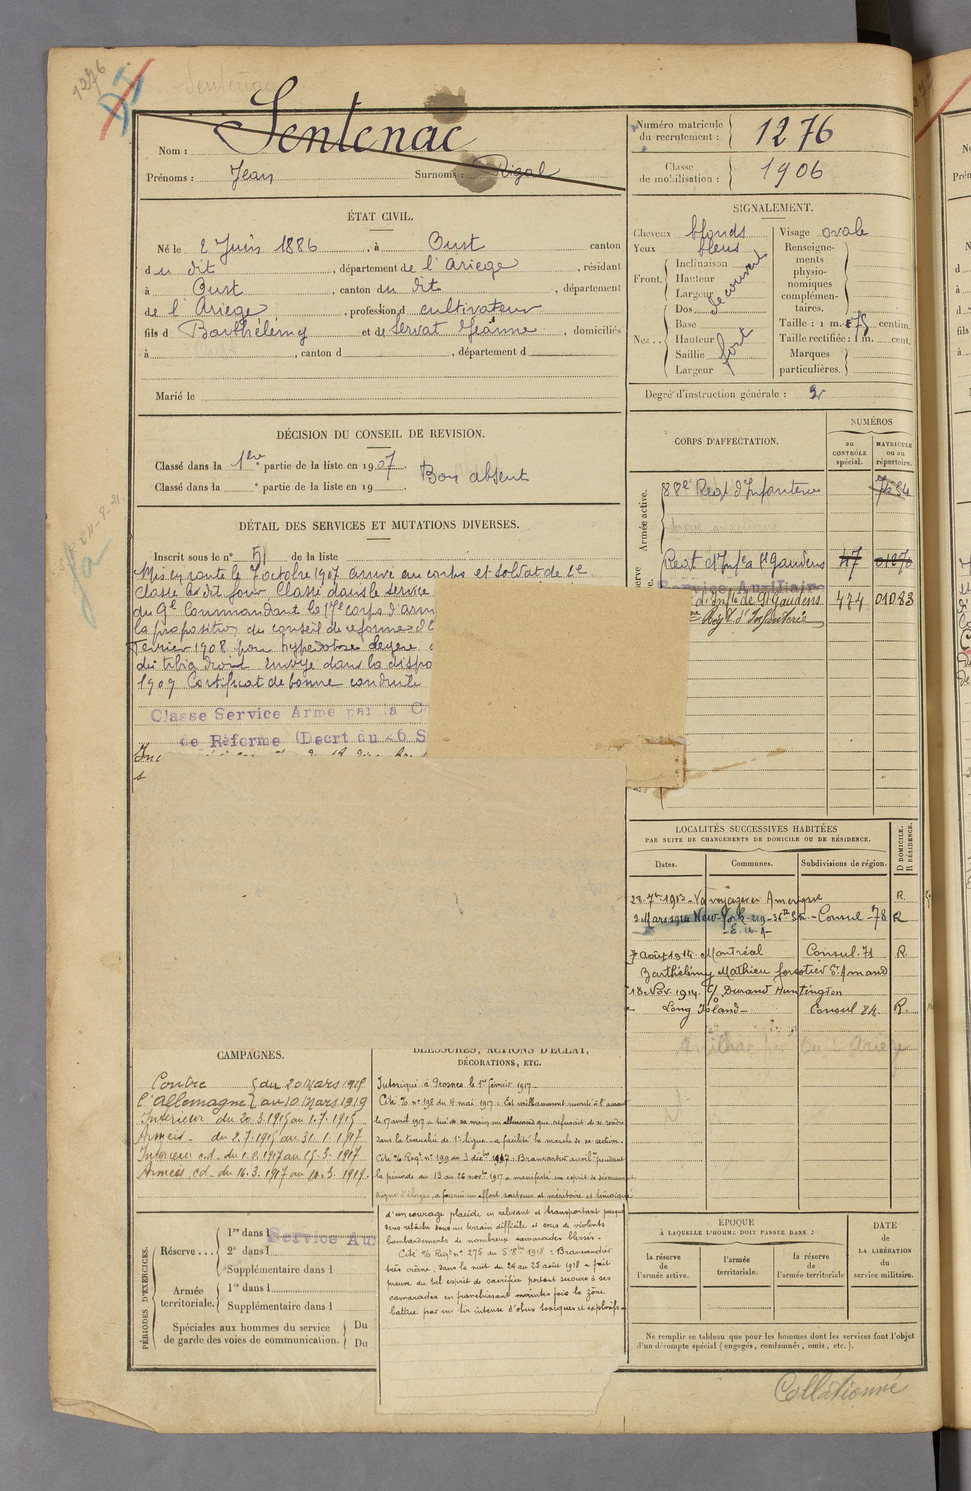 1276
Nom : Sentenac
Prénoms : Jean Surnoms : Rigal
Numéro matricule du recrutement : 1276
Classe de mobilisation : 1906
ÉTAT CIVIL.
Né le 2 Juin 1886, à Oust canton
du dit, département de l'Ariège, résidant
à Oust, canton du dit, département
de l'Ariège, profession d cultivateur
fils d Barthélémy et de Servat Jeanne, domiciliés
à , canton d , département d
Marié le
SIGNALEMENT.
Cheveux blonds
Yeux bleus
Front. Inclinaison
Hauteur
Largeur
découvert
Nez.. Dos
Base
Hauteur
Saillie
Largeur
fort
Visage ovale
Renseigne-
ments
physio-
nomiques
complémen-
taires.
Taille : 1 m. 78 centim.
Taille rectifiée : 1 m. cent.
Marques
particulières.
Degré d'instruction générale : 2
DÉCISION DU CONSEIL DE REVISION.
Classé dans la 1ère partie de la liste en 1907. Bon absent
Classé dans la e partie de la liste en 19
DÉTAIL DES SERVICES ET MUTATIONS DIVERSES.
Inscrit sous le n° 51 de la liste
Mis en route le 7 octobre 1907 arrivé au corps et soldat de 2e
classe le dit jour Classé dans le service
du Gl Commandant le 17e corps d'arm
la proposition du conseil de réforme
Février 1908 pour
du tibia droit envoyé dans la dispo
1909 Certificat de bonne conduite
Classe Service Armé par la C
de Réforme (Decrt du 26 S
CORPS D'AFFECTATION.
NUMÉROS
au CONTRÔLE spécial.
MATRICULE ou au répertoire.
Armée active.
88e Regt d'Infanterie 7284
Regt d'Infie St Gaudens 47 01270
Service Auxiliaire
d'Infie de St Gaudens 474 01083
Régt d'Infanterie
LOCALITÉS SUCCESSIVES HABITÉES
PAR SUITE DE CHANGEMENTS DE DOMICILE OU DE RÉSIDENCE.
Dates. Communes. Subdivisions de région. D DOMICILE. R RÉSIDENCE.
22 7bre 1913 - Va voyager en Amérique R.
2 Mars 1914 New-York 219 - 36th St. - Consul 78 R
- E.U.A -
7 Août 1914 Montréal Consul 71 R.
Barthélémy Mathieu forestier St Amand
18 Nov. 1914 c/ Durand Huntington
Long Island - Consul 84 R.
CAMPAGNES.
Contre l'Allemagne du 20 Mars 1915 au 10 Mars 1919
Intérieur du 20.3.1915 au 1.7.1915
Armées - du 2.7.1915 au 31.1.1917
Intérieur c.d. du 1.2.1917 au 15.3.1917
Armées c.d. du 16.3.1917 au 10.3.1919.
BLESSURES, ACTIONS D'ÉCLAT,
DÉCORATIONS, ETC.
Intoxiqué à Prosnes le 1er février 1917.
Cité % n° 198 du 4 mai 1917 : Est vaillamment monté à l'assaut
le 17 avril 1917 a tué de sa main un allemand qui refusait de se rendre
dans la tranchée de 1e ligne - a facilité la marche de sa section.
Cité % Régt n° 199 du 3 décbre 1917 : Brancardier auxilre pendant
la période du 13 au 26 novbre 1917 a manifesté un esprit de dévouement
digne d'éloges, a fourni un effort soutenu et méritoire et témoigné
d'un courage placide en relevant et transportant presque
sans relâche sous un terrain difficile et sous de violents
bombardements de nombreux camarades blessés.
Cité % Régt n° 275 du 5 8bre 1918 : Brancardier
très crâne, dans la nuit du 24 au 25 août 1918 a fait
preuve du bel esprit de sacrifice portant secours à ses
camarades en franchissant maintes fois la zône
battue par un tir intense d'obus toxiques et explosifs.
PÉRIODES D'EXERCICES.
Réserve ... 1re dans l Service Aux
2e dans l
Supplémentaire dans l
Armée territoriale. 1re dans l
Supplémentaire dans l
Spéciales aux hommes du service Du
de garde des voies de communication. Du
ÉPOQUE
À LAQUELLE L'HOMME DOIT PASSER DANS :
la réserve de l'armée active.
l'armée territoriale.
la réserve de l'armée territoriale
DATE de LA LIBÉRATION du service militaire.
Ne remplir ce tableau que pour les hommes dont les services font l'objet
d'un décompte spécial (engagés, condamnés, omis, etc.).
Collationné